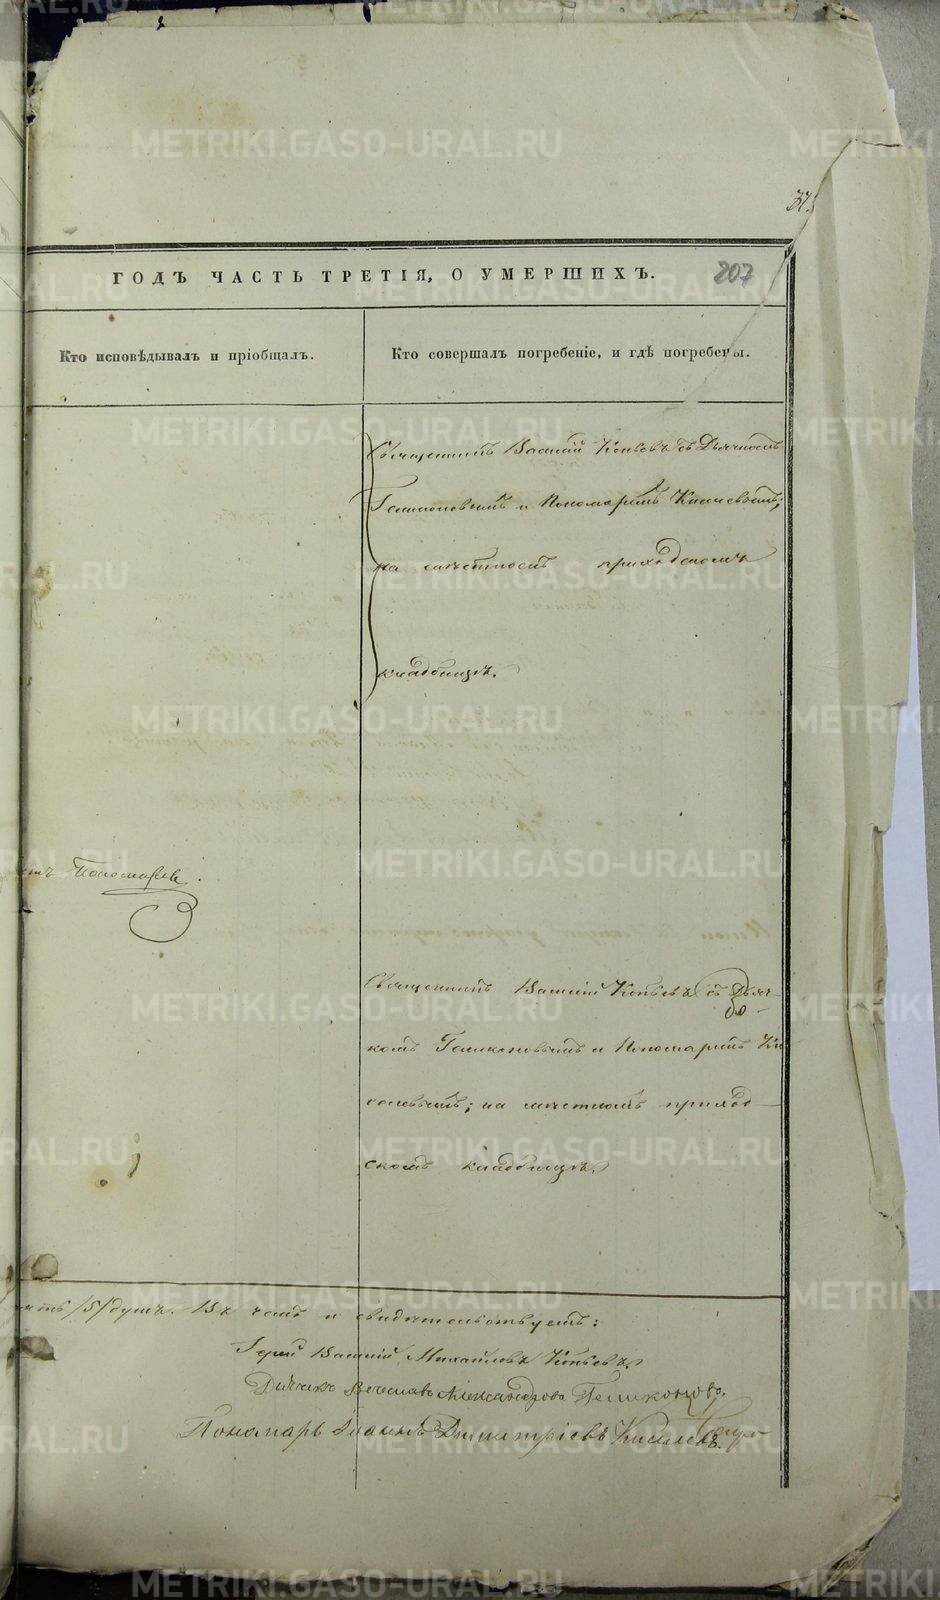 37
ГОДЪ ЧАСТЬ ТРЕТІЯ, О УМЕРШИХЪ. 207
Кто исповѣдывалъ и пріобщалъ.
Кто совершалъ погребеніе, и гдѣ погребены.
Священникъ Василій Копьевъ съ Дьячкомъ
и Пономаремъ
на мѣстномъ приходскомъ
кладбищѣ.
Пономарев
Священникъ Василій Копьевъ съ Дьяч-
комъ и Пономаремъ Ки
селевымъ; на мѣстномъ приход
скомъ кладбищѣ.
/5/ душъ. Въ чемъ и свидѣтельствуетъ:
Іерей Василій Михайловъ Копьевъ.
Дьячекъ Вячеславъ Александровъ Геликоновъ.
Пономарь Іоаннъ Димитріевъ Киселевъ.
METRIKI.GASO-URAL.RU